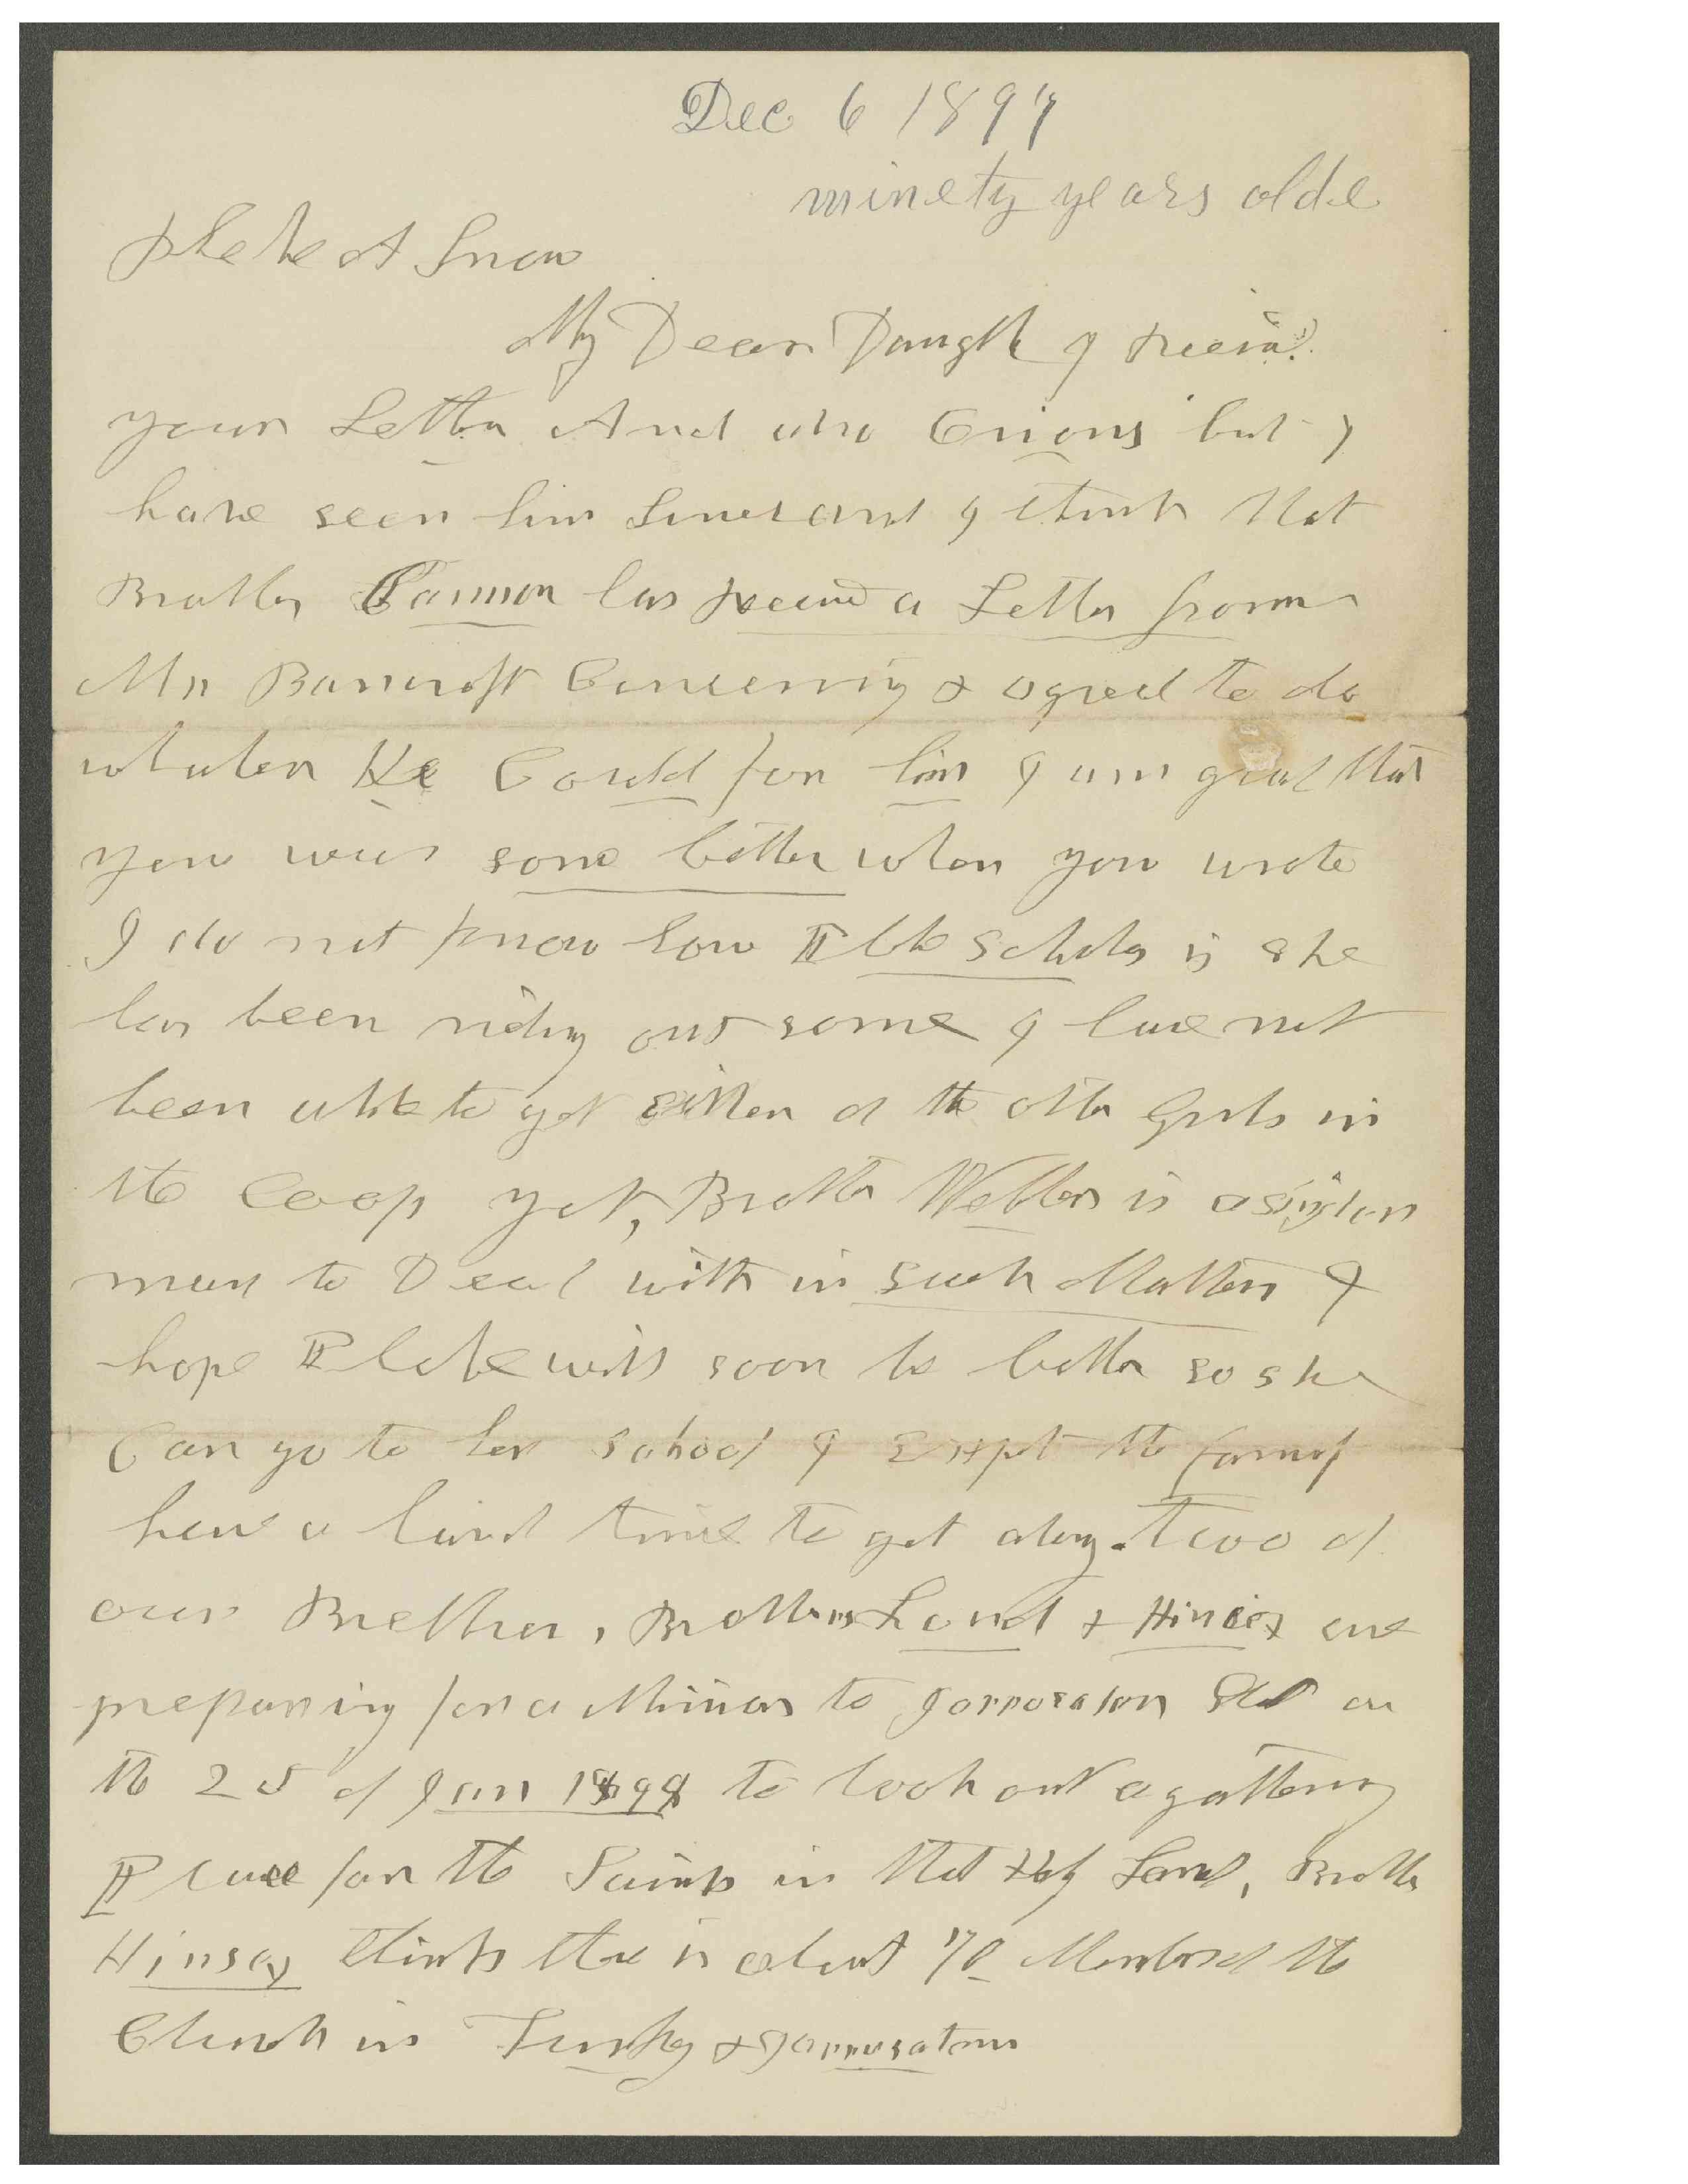 Dec 6 1897
ninety years olde
Phebe A Snow
My Dear Daughter I Receivd
your Letter And also Orions but I
have seen him since and I think that
Brother Cannon has Receivd a Letter from
Mr Bancroft Concerning & agreed to do
whater He Could for him I am glad that
you was some better when you wrote
I do not know how Phebe Scholes is she
has been riding out some I have not
been able to get either of the other Girls in
the Coop yet, Brother Webber is a singlar
man to Deal with in such Matters I
hope Phebe will soon be better so she
Can go to her school I Exspet the family
have a hard time to get along. Two of
our Brethren, Brothers Lund & Hincey are
preparing for a Mission to Jerrusalem Start on
the 25 of Jan 1898 to look out a gathering
Place for the Saints in that Holy Land, Brother
Hinsey thinks there is about 70 Members of the
Church in Turkey & Jerrusalem